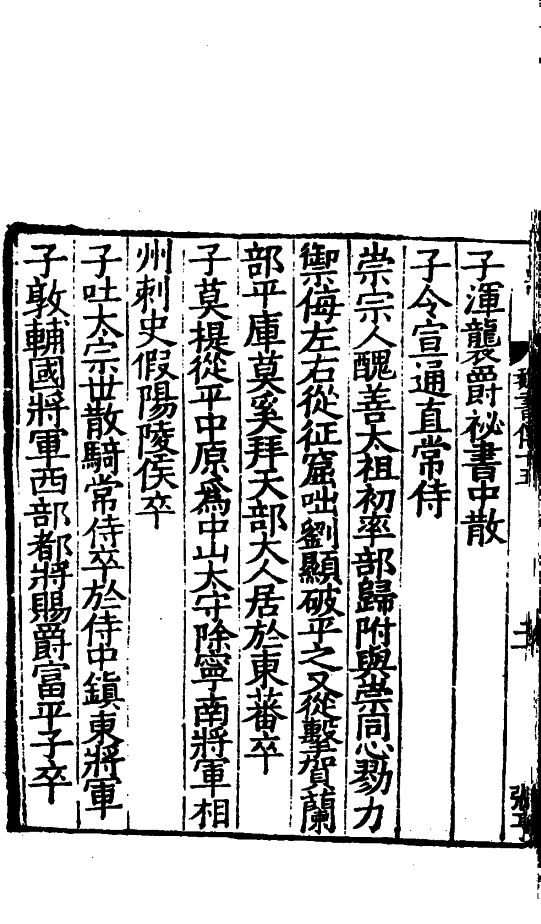 子渾襲爵祕書中散
子令宣通直常侍
崇宗人醜善太祖初率部歸附與崇同心勠力
禦侮左右從征窟咄劉顯破平之又從擊賀蘭
部平庫莫奚拜天部大人居於東蕃卒
子莫提從平中原爲中山太守除寧南將軍相
州刺史假陽陵侯卒
子吐太宗世散騎常侍卒於侍中鎮東將軍
子敦輔國將軍西部都將賜爵富平子卒